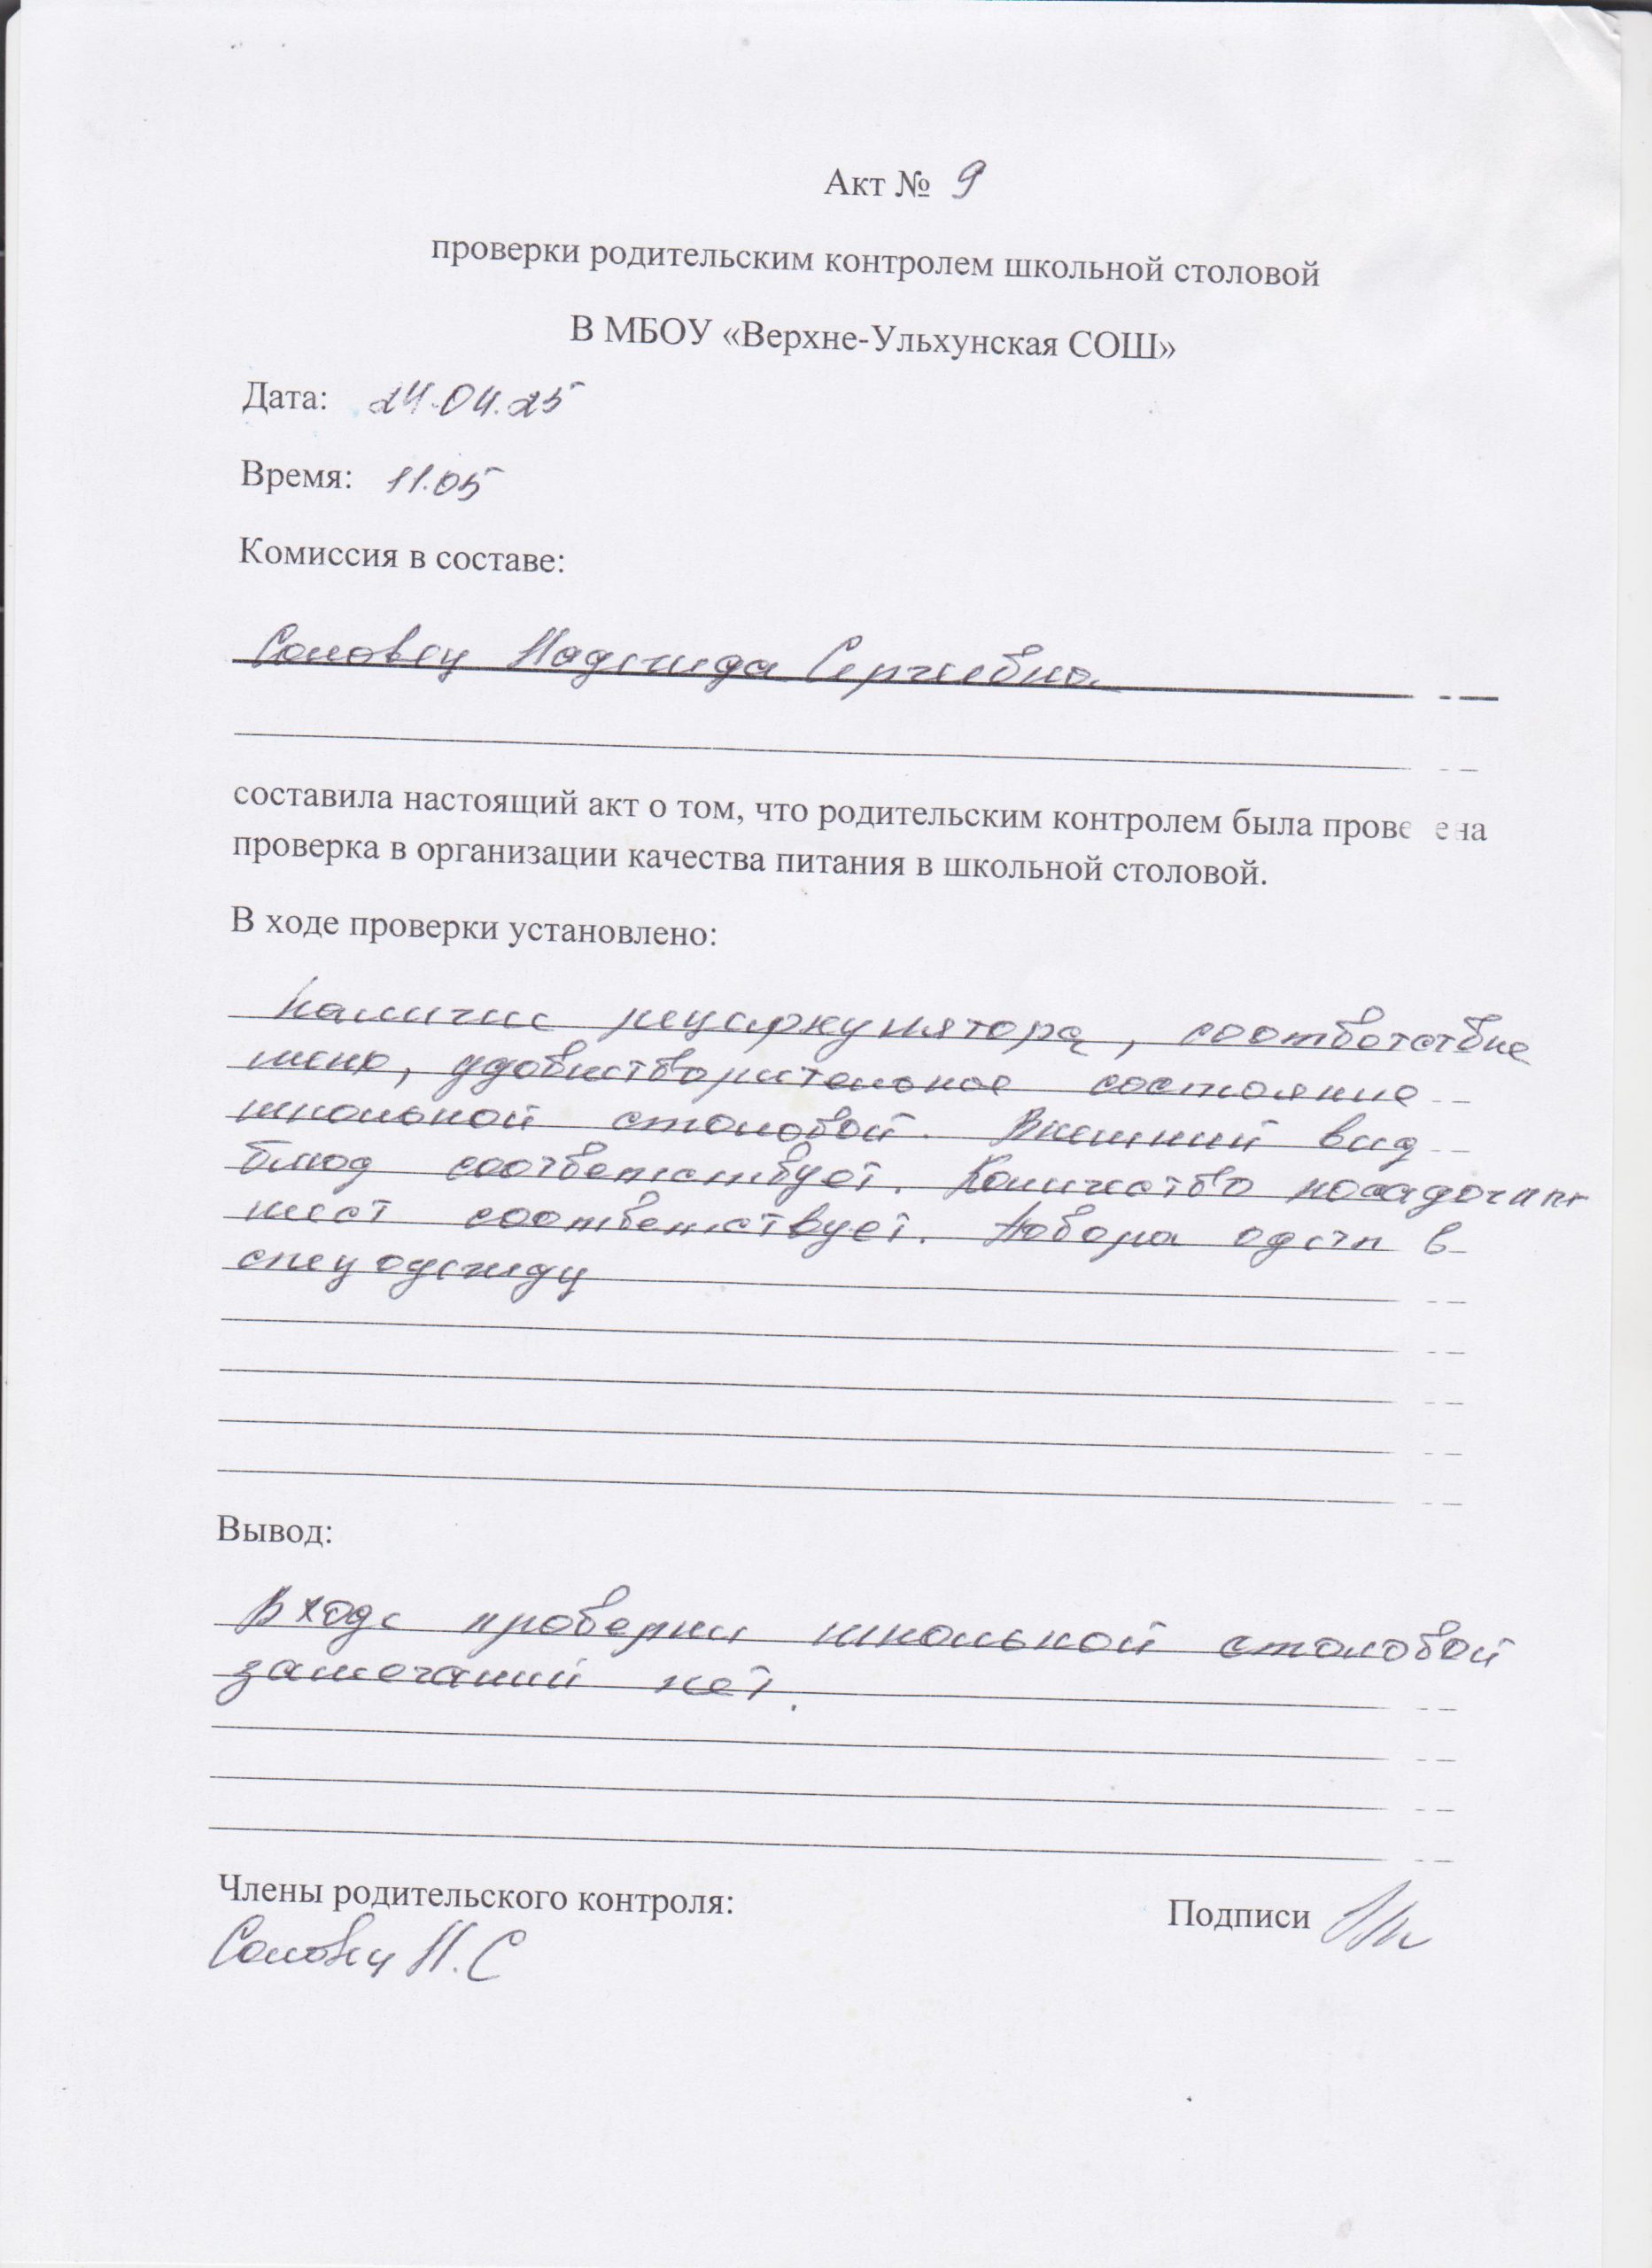 Акт № 9
проверки родительским контролем школьной столовой
В МБОУ «Верхне-Ульхунская СОШ»
Дата: 24.04.25
Время: 11.05
Комиссия в составе:
Соловец Надежда Сергеевна
составила настоящий акт о том, что родительским контролем была прове ена
проверка в организации качества питания в школьной столовой.
В ходе проверки установлено:
наличие рециркулятора, соответствие
меню, удовлетворительное состояние
школьной столовой. Внешний вид
блюд соответствует. Количество посадочных
мест соответствует. Повора одеты в
спец одежду
Вывод:
В ходе проверки школьной столовой
замечаний нет.
Члены родительского контроля: Подписи
Соловец Н.С